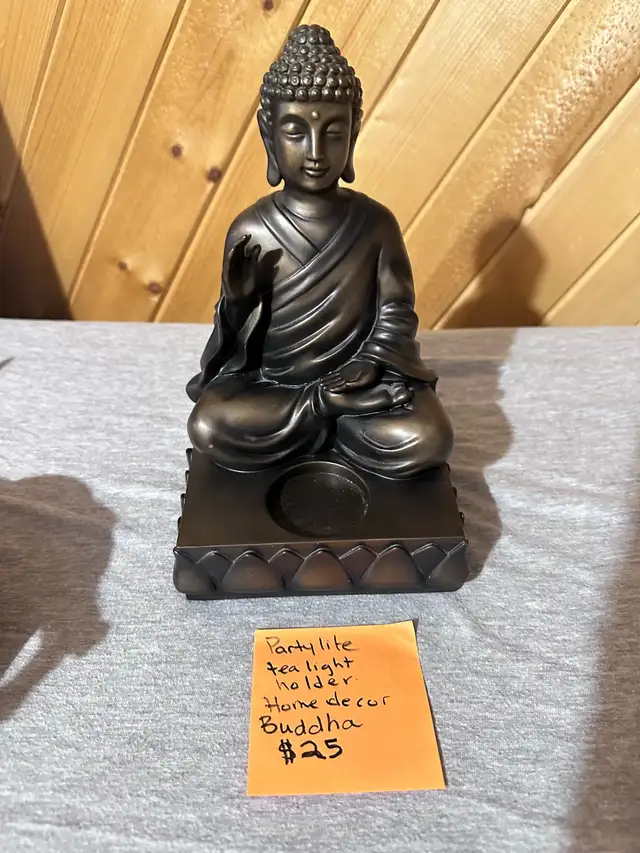 Partylite
tea light
holder.
Home decor
Buddha
$25